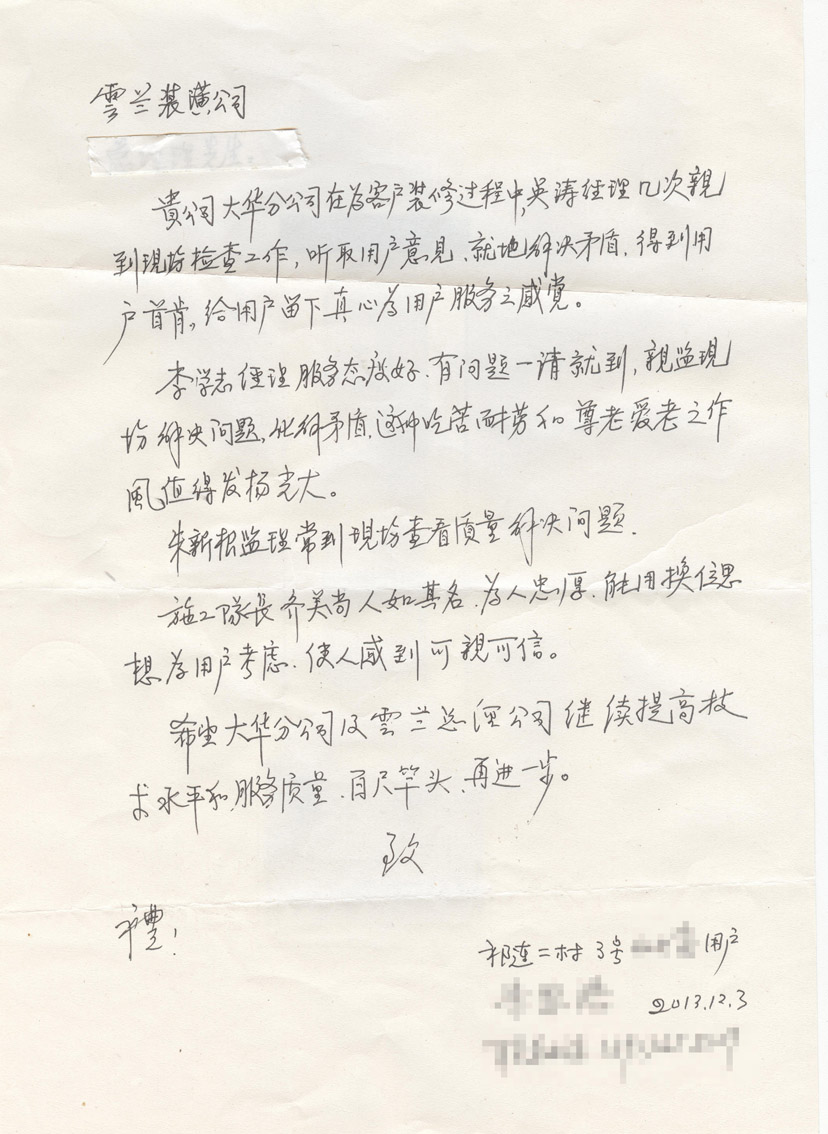 雲兰装璜公司
貴公司大华分公司在为客户装修过程中,吴涛经理几次親
到現场检查工作,听取用户意見、就地解决矛盾,得到用
户首肯,给用户留下真心為用户服务之感觉。
李学志经理服务态度好、有问题一请就到,親监現
场解决问题,化解矛盾,这种吃苦耐劳和尊老爱老之作
風值得发扬光大。
朱新松监理常到現场查看质量解决问题.
施工隊長齐美尚人如其名、為人忠厚、能用换位思
想為用户考虑、使人感到可親可信。
希望大华分公司及雲兰总徑公司继续提高技
术水平和服务质量、百尺竿头、再进一步。
致
禮!
祁连二村3号 用户
2013.12.3